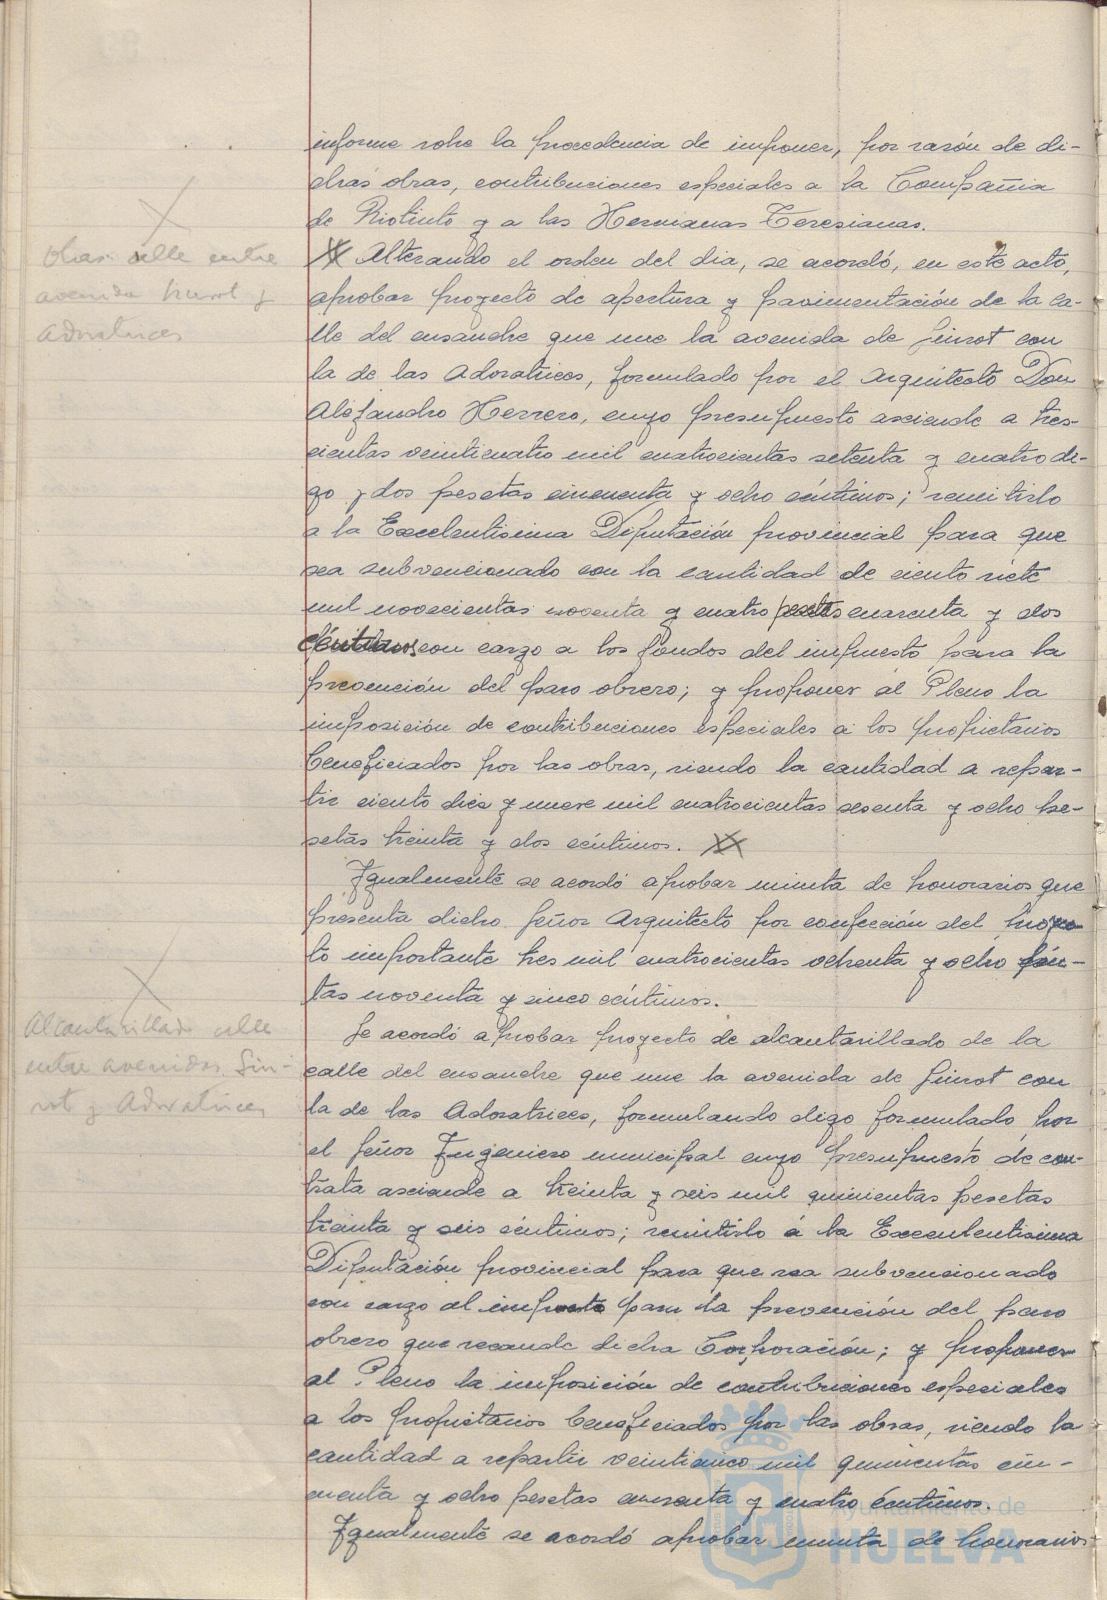 informe sobre la procedencia de imponer, por razón de di-
chas obras, contribuciones especiales a la Compañia
de Riotinto y a las Hermanas Teresianas.
Obras calle entre
avenida Sinrot y
Adoratrices
Alterando el orden del dia, se acordó, en este acto,
aprobar proyecto de apertura y pavimentación de la ca-
lle del ensanche que une la avenida de Sinrot con
la de las Adoratrices, formulado por el Arquitecto Don
Alejandro Herrero, cuyo presupuesto asciende a tres-
cientas veinticuatro mil cuatrocientas setenta y cuatro di-
go y dos pesetas cincuenta y ocho céntimos; remitirlo
a la Excelentisima Diputación provincial para que
sea subvencionado con la cantidad de ciento siete
mil novecientas noventa y cuatro pesetas cuarenta y dos
céntimos con cargo a los fondos del impuesto para la
prevención del paro obrero; y proponer al Pleno la
imposición de contribuciones especiales a los propietarios
beneficiados por las obras, siendo la cantidad a repar-
tir ciento diez y nueve mil cuatrocientas sesenta y ocho pe-
setas treinta y dos céntimos.
Igualmente se acordó aprobar minuta de honorarios que
presenta dicho Señor Arquitecto por confección del
to importante tres mil cuatrocientas ochenta y ocho
tas noventa y cinco céntimos.
Alcantarillado calle
entre avenidas Sin-
rot y Adoratrices
Se acordó aprobar proyecto de alcantarillado de la
calle del ensanche que une la avenida de Sinrot con
la de las Adoratrices, formulando digo formulado por
el Señor Ingeniero municipal cuyo presupuesto de con-
trata asciende a treinta y seis mil quinientas pesetas
treinta y seis céntimos; remitirlo á la Excelentisima
Diputación provincial para que sea subvencionado
con cargo al impuesto para la prevención del paro
obrero que recauda dicha Corporación; y proponer
al Pleno la imposición de contribuciones especiales
a los propietarios beneficiados por las obras, siendo la
cantidad a repartir veinticinco mil quinientas cin-
cuenta y ocho pesetas cuarenta y cuatro céntimos.
Igualmente se acordó aprobar minuta de honorarios
Ayuntamiento de
HUELVA